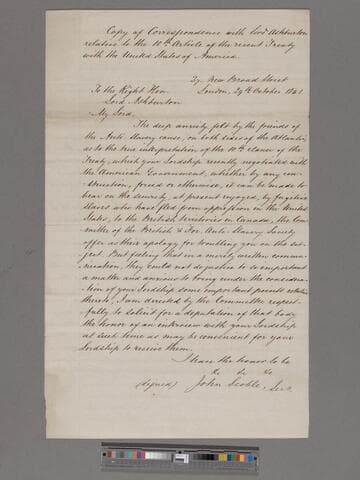 Copy of Correspondence with Lord Ashburton
relative to the 10th Article of the recent Treaty
with the United States of America.
27 New Broad Street
London, 29th October 1842
To the Right Hon
Lord Ashburton
My Lord,
The deep anxiety felt by the friends of
the Anti Slavery cause, on both sides of the Atlantic,
as to the true interpretation of the 10th clause of the
Treaty, which your Lordship recently negotiated with
the American Government, whether by any con-
struction, forced or otherwise, it can be made to
bear on the security, at present enjoyed, by fugitive
slaves who have fled from oppression in the United
States, to the British Territories in Canada, the Com
mittee of the British & For. Anti Slavery Society
offer as their apology for troubling you on the sub
ject. But feeling that in a merely written commu
nication, they could not do justice to so important
a matter and anxious to bring under the considera
tion of your Lordship some important points relative
thereto, I am directed by the Committee respect-
fully to solicit for a deputation of that body
the honor of an interview with your Lordship
at such time as may be convenient for your
Lordship to receive them.
I have the honor to be
&c &c &c
(signed) John Scoble, Sec.